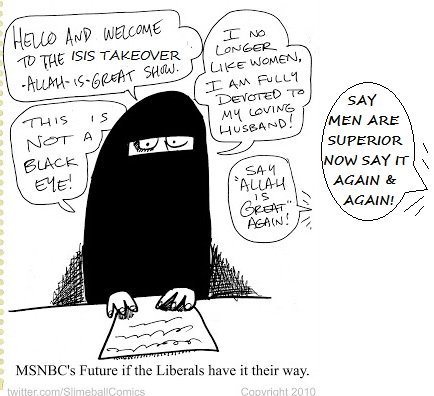 HELLO AND WELCOME
TO THE ISIS TAKEOVER
-ALLAH-IS-GREAT SHOW.
I NO
LONGER
LIKE WOMEN,
I AM FULLY
DEVOTED TO
MY LOVING
HUSBAND!
THIS IS
NOT A
BLACK
EYE!
SAY
"ALLAH
IS
GREAT"
AGAIN!
SAY
MEN ARE
SUPERIOR
NOW SAY IT
AGAIN &
AGAIN!
MSNBC's Future if the Liberals have it their way.
twitter.com/SlimeballComics
Copyright 2010